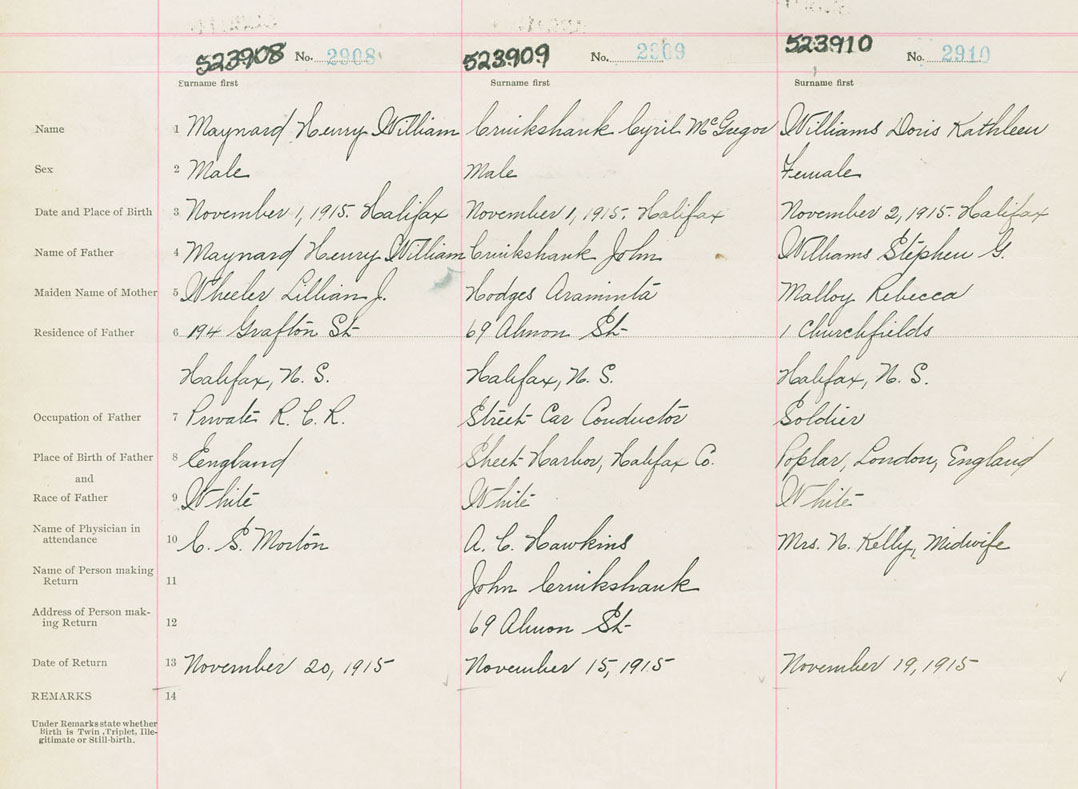 523908 No. 2908 523909 No. 2909 523910 No. 2910
Surname first Surname first Surname first
Name 1 Maynard Henry William Cruikshank Cyril McGregor Williams Doris Kathleen
Sex 2 Male Male Female
Date and Place of Birth 3 November 1, 1915. Halifax November 1, 1915. Halifax November 2, 1915. Halifax
Name of Father 4 Maynard Henry William Cruikshank John Williams Stephen G.
Maiden Name of Mother 5 Wheeler Lillian J. Hodges Araminta Malloy Rebecca
Residence of Father 6 194 Grafton St 69 Almon St 1 Churchfields
Halifax, N. S. Halifax, N. S. Halifax, N. S.
Occupation of Father 7 Private R. C. R. Street Car Conductor Soldier
Place of Birth of Father 8 England Sheet Harbor, Halifax Co. Poplar, London, England
and
Race of Father 9 White White White
Name of Physician in
attendance 10 C. S. Morton A. C. Hawkins Mrs. N. Kelly, Midwife
Name of Person making
Return 11 John Cruikshank
Address of Person mak-
ing Return 12 69 Almon St
Date of Return 13 November 20, 1915 November 15, 1915 November 19, 1915
REMARKS 14
Under Remarks state whether
Birth is Twin, Triplet, Ille-
gitimate or Still-birth.